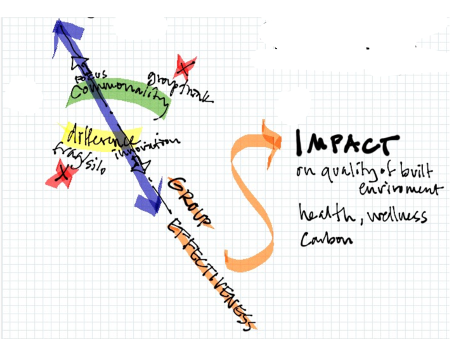 focus
groupthink
commonality
difference
innovation
frag/silo
GROUP
EFFECTIVENESS
IMPACT
on quality of built
enviroment
health, wellness
Carbon